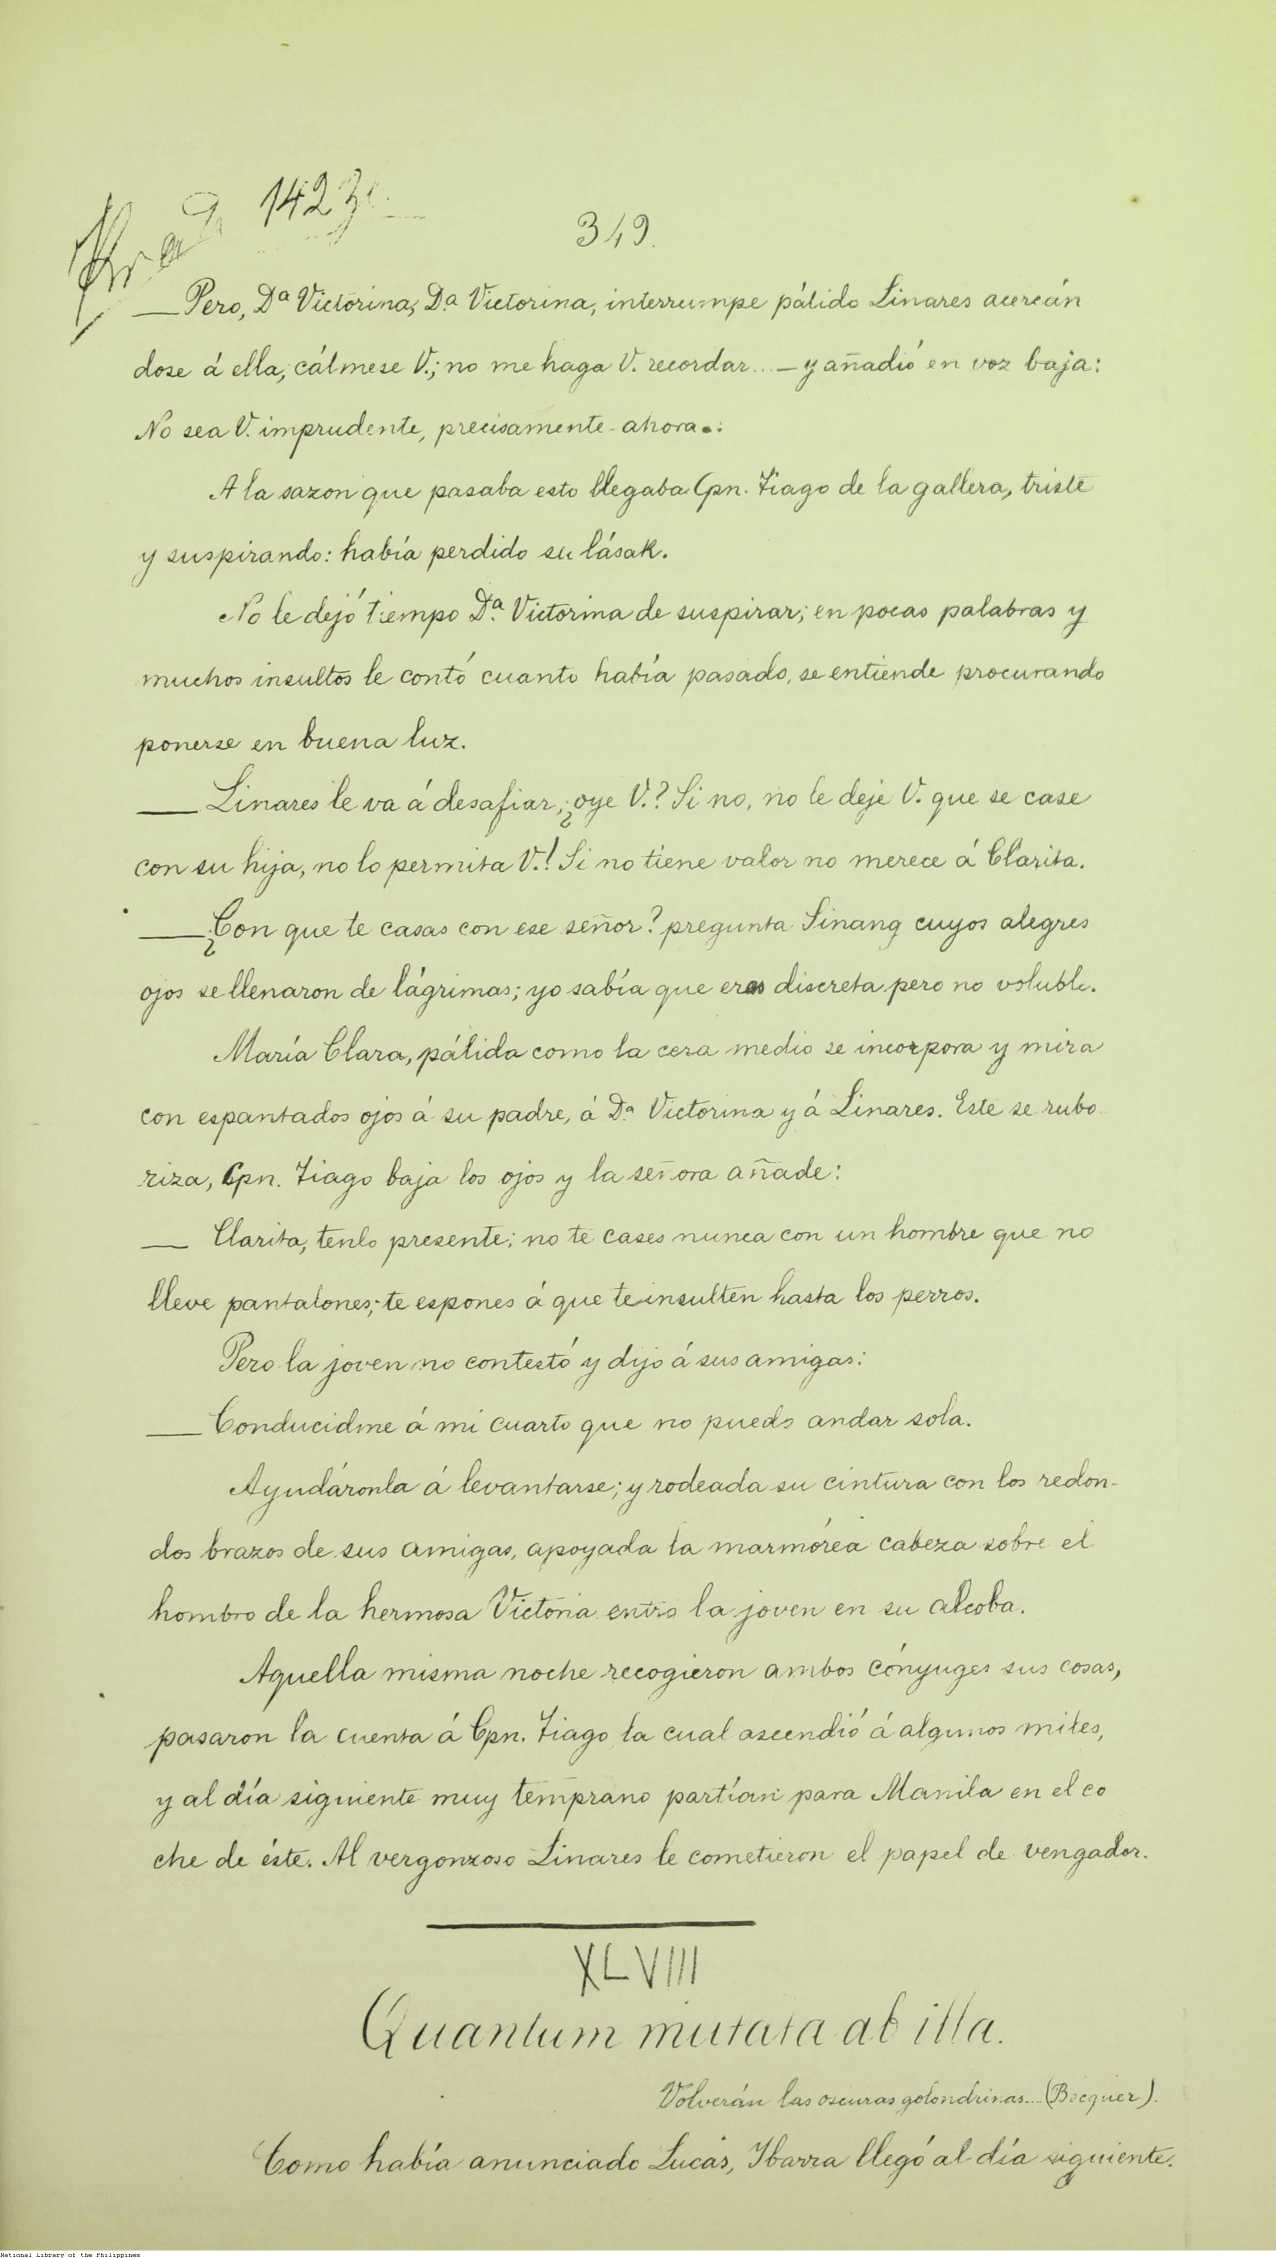 1423
349.
— Pero, Dª Victorina, Dª Victorina, interrumpe pálido Linares acercán
dose á ella, cálmese V.; no me haga V. recordar... — y añadió en voz baja:
No sea V. imprudente, precisamente ahora..
A la sazon que pasaba esto llegaba Cpn. Tiago de la gallera, triste
y suspirando: había perdido su lásak.
No le dejó tiempo Dª Victorina de suspirar; en pocas palabras y
muchos insultos le contó cuanto había pasado, se entiende procurando
ponerse en buena luz.
— Linares le va á desafiar, ¿oye V.? Si no, no le deje V. que se case
con su hija, no lo permita V.! Si no tiene valor no merece á Clarita.
— ¿Con que te casas con ese señor? pregunta Sinang cuyos alegres
ojos se llenaron de lágrimas; yo sabía que eras discreta pero no voluble.
María Clara, pálida como la cera medio se incorpora y mira
con espantados ojos á su padre, á Dª Victorina y á Linares. Este se rubo
riza, Cpn. Tiago baja los ojos y la señora añade:
— Clarita, tenlo presente: no te cases nunca con un hombre que no
lleve pantalones; te espones á que te insulten hasta los perros.
Pero la joven no contestó y dijo á sus amigas:
— Conducidme á mi cuarto que no puedo andar sola.
Ayudáronla á levantarse; y rodeada su cintura con los redon-
dos brazos de sus amigas, apoyada la marmórea cabeza sobre el
hombro de la hermosa Victoria entró la joven en su alcoba.
Aquella misma noche recogieron ambos cónyuges sus cosas,
pasaron la cuenta á Cpn. Tiago la cual ascendió á algunos miles,
y al día siguiente muy temprano partían para Manila en el co
che de éste. Al vergonzoso Linares le cometieron el papel de vengador.
XLVIII
Quantum mutata ab illa.
Volverán las oscuras golondrinas... (Becquer).
Como había anunciado Lucas, Ibarra llegó al día siguiente.
National Library of the Philippines